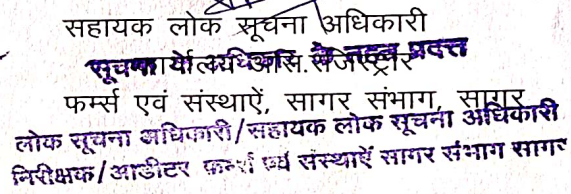 सहायक लोक सूचना अधिकारी
सूचना का अधिकार के तहत प्रदत्त
कार्यालय असि.रजिस्ट्रार
फर्म्स एवं संस्थाऐं, सागर संभाग, सागर
लोक सूचना अधिकारी/सहायक लोक सूचना अधिकारी
निरीक्षक/आडीटर फर्म्स एवं संस्थाऐं सागर संभाग सागर